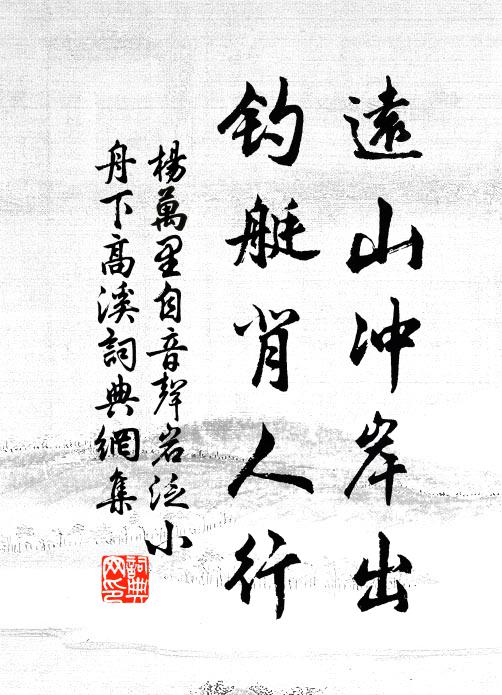 遠山冲岸出
釣艇背人行
楊萬里自音聲岩泛小
舟下高溪詞典網集
詞典
网印